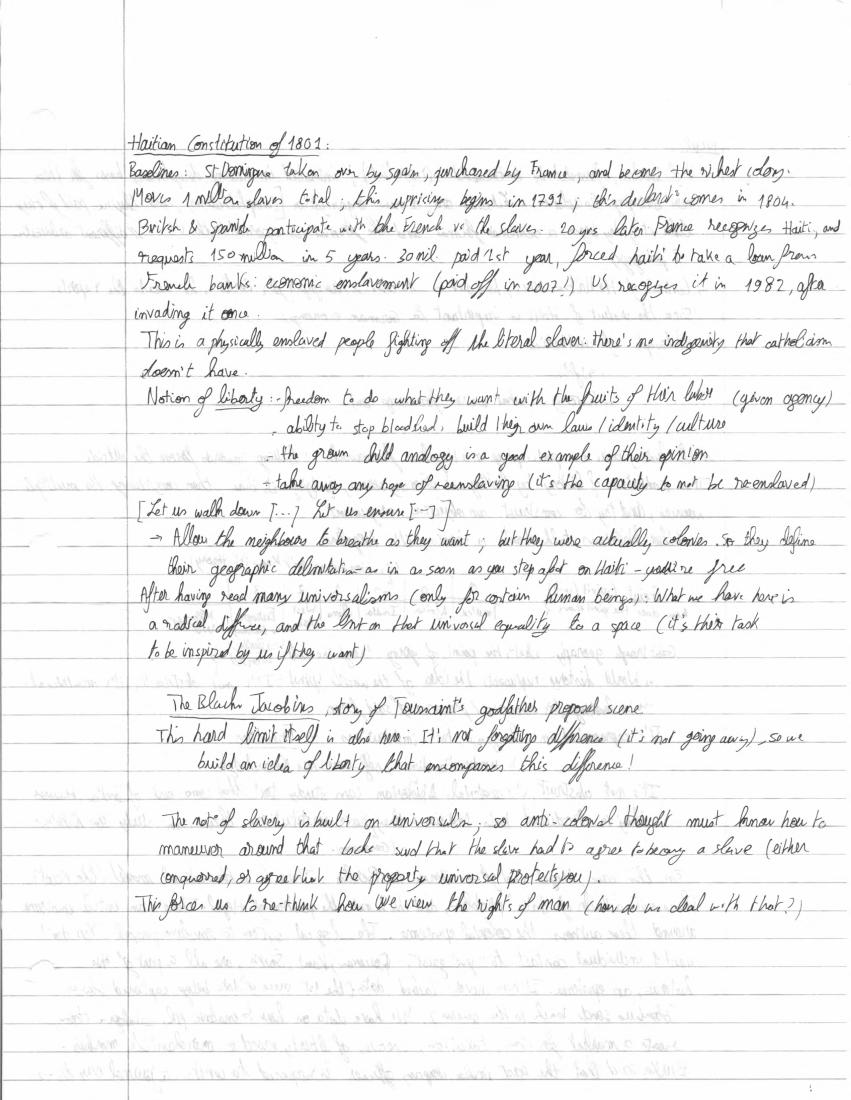 Haitian Constitution of 1801:
Baselines: St Domingue taken over by spain, purchased by France, and becomes the richest colony.
Moves 1 million slaves total; this uprising begins in 1791; this declarat° comes in 1804.
British & Spanish participate with the French vs the slaves. 20 yrs later France recognizes Haiti, and
requests 150 million in 5 years. 30 mil paid 1st year, forced haiti to take a loan from
French banks: economic enslavement (paid off in 2007!) US recognizes it in 1982, after
invading it once.
This is a physically enslaved people fighting off the literal slaver: there's no indigeneity that catholicism
doesn't have.
Notion of liberty: - freedom to do what they want with the fruits of their labor (given agency)
- ability to stop bloodshed, build their own laws / identity / culture
- the grown child analogy is a good example of their opinion
- take away any hope of reenslaving (it's the capacity to not be re-enslaved)
[Let us walk down [...] Let us ensure [...]]
→ Allow the neighbours to breathe as they want; but they were actually colonies. So they define
their geographic delimitation - as in as soon as you step afoot on Haiti - you're free
After having read many universalisms (only for certain human beings): What we have here is
a radical diffce, and the limit on that universal equality to a space (it's their task
to be inspired by us if they want)
The Black Jacobins, story of Toussaint's godfather proposal scene
This hard limit itself is also here: It's not forgetting difference (it's not going away), so we
build an idea of liberty that encompasses this difference!
The not° of slavery is built on universalism; so anti-colonial thought must know how to
maneuver around that. Locke said that the slave had to agree to becoming a slave (either
conquerred, or agree that the property universal protects you).
This forces us to re-think how we view the rights of man (how do we deal with that?)